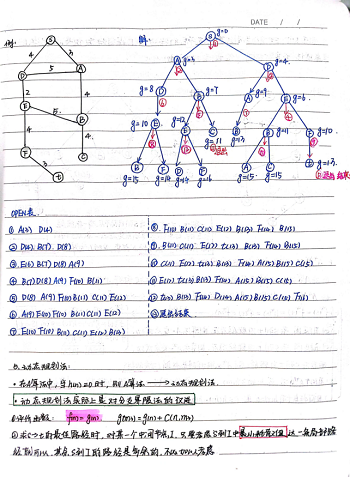 DATE / /
例:
解:
S g=0
A g=3
D g=4
g=8 D
B g=7
g=9 A
E g=6
g=10 E
g=12 E
C g=11
g=13 B
B g=11
F g=10
g=15 B
F g=14
g=15
g=15
g=13
OPEN表
① A(3) D(4)
② D(4) B(7) D(8)
③ E(6) B(7) D(8) A(9)
④ B(7) D(8) A(9) F(10) B(11)
⑤ D(8) A(9) F(10) B(11) C(11) E(12)
⑥ A(9) E(10) F(10) B(11) C(11) E(12)
⑦ E(10) F(10) B(11) C(11) E(12) B(13)
⑧ F(10) B(11) C(11) E(12) B(13) F(14) B(15)
B(11) C(11) E(12) t(13) B(13) F(14) B(15)
C(11) E(12) t(13) B(13) F(14) A(15) B(15) C(15)
E(12) t(13) B(13) F(14) A(15) B(15) C(15)
t(13) B(13) F(14) D(14) A(15) B(15) C(15) F(16)
成功结束
5. 动态规划法
• 在A算法中, 当h(n)≡0时, 则A算法 → 动态规划法.
• 动态规划法实际上是对分支界限法的改进
评价函数: f(n) = g(n) g(n) = g(n) + C(n, m)
② 求S→t的最佳路径时, 对某一个中间节点I, 只要考虑S到I中最小耗散值这一条局部路
径即可以, 其余S到I的路径是多余的, 不必加以考虑